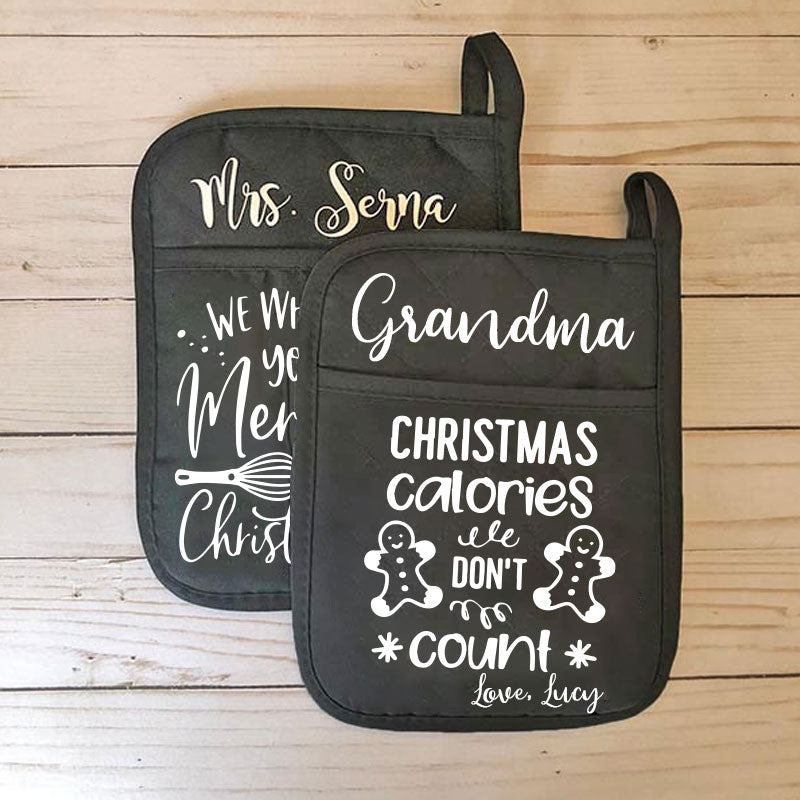 Mrs. Serna
WE
Christ
Grandma
CHRISTMAS
calories
DON'T
count
Love, Lucy